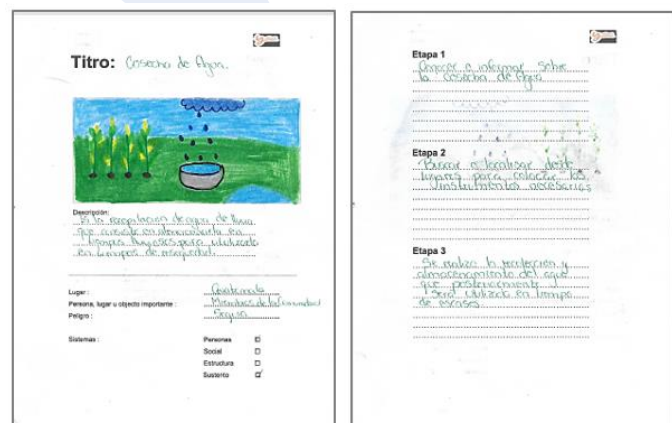 Titro: Cosecha de Agua.
Descripción:
Es la recopilación de agua de lluvia
que consiste en almacenarla en
tiempos lluviosos para utilizarla
en tiempos de
Lugar: Guatemala
Persona, lugar u objecto importante : Miembros de la Comunidad
Peligro : Sequia
Sistemas : Personas
Social
Estructura
Sustento
Etapa 1
Conocer e informar sobre
la cosecha de Agua
Etapa 2
Buscar o localisar desde
lugares para colocar los
instrumentos necesarios
Etapa 3
Se realiza la recolección y
almacenamiento del agua
que posteriormente
Será utilizada en tiempo
de escases